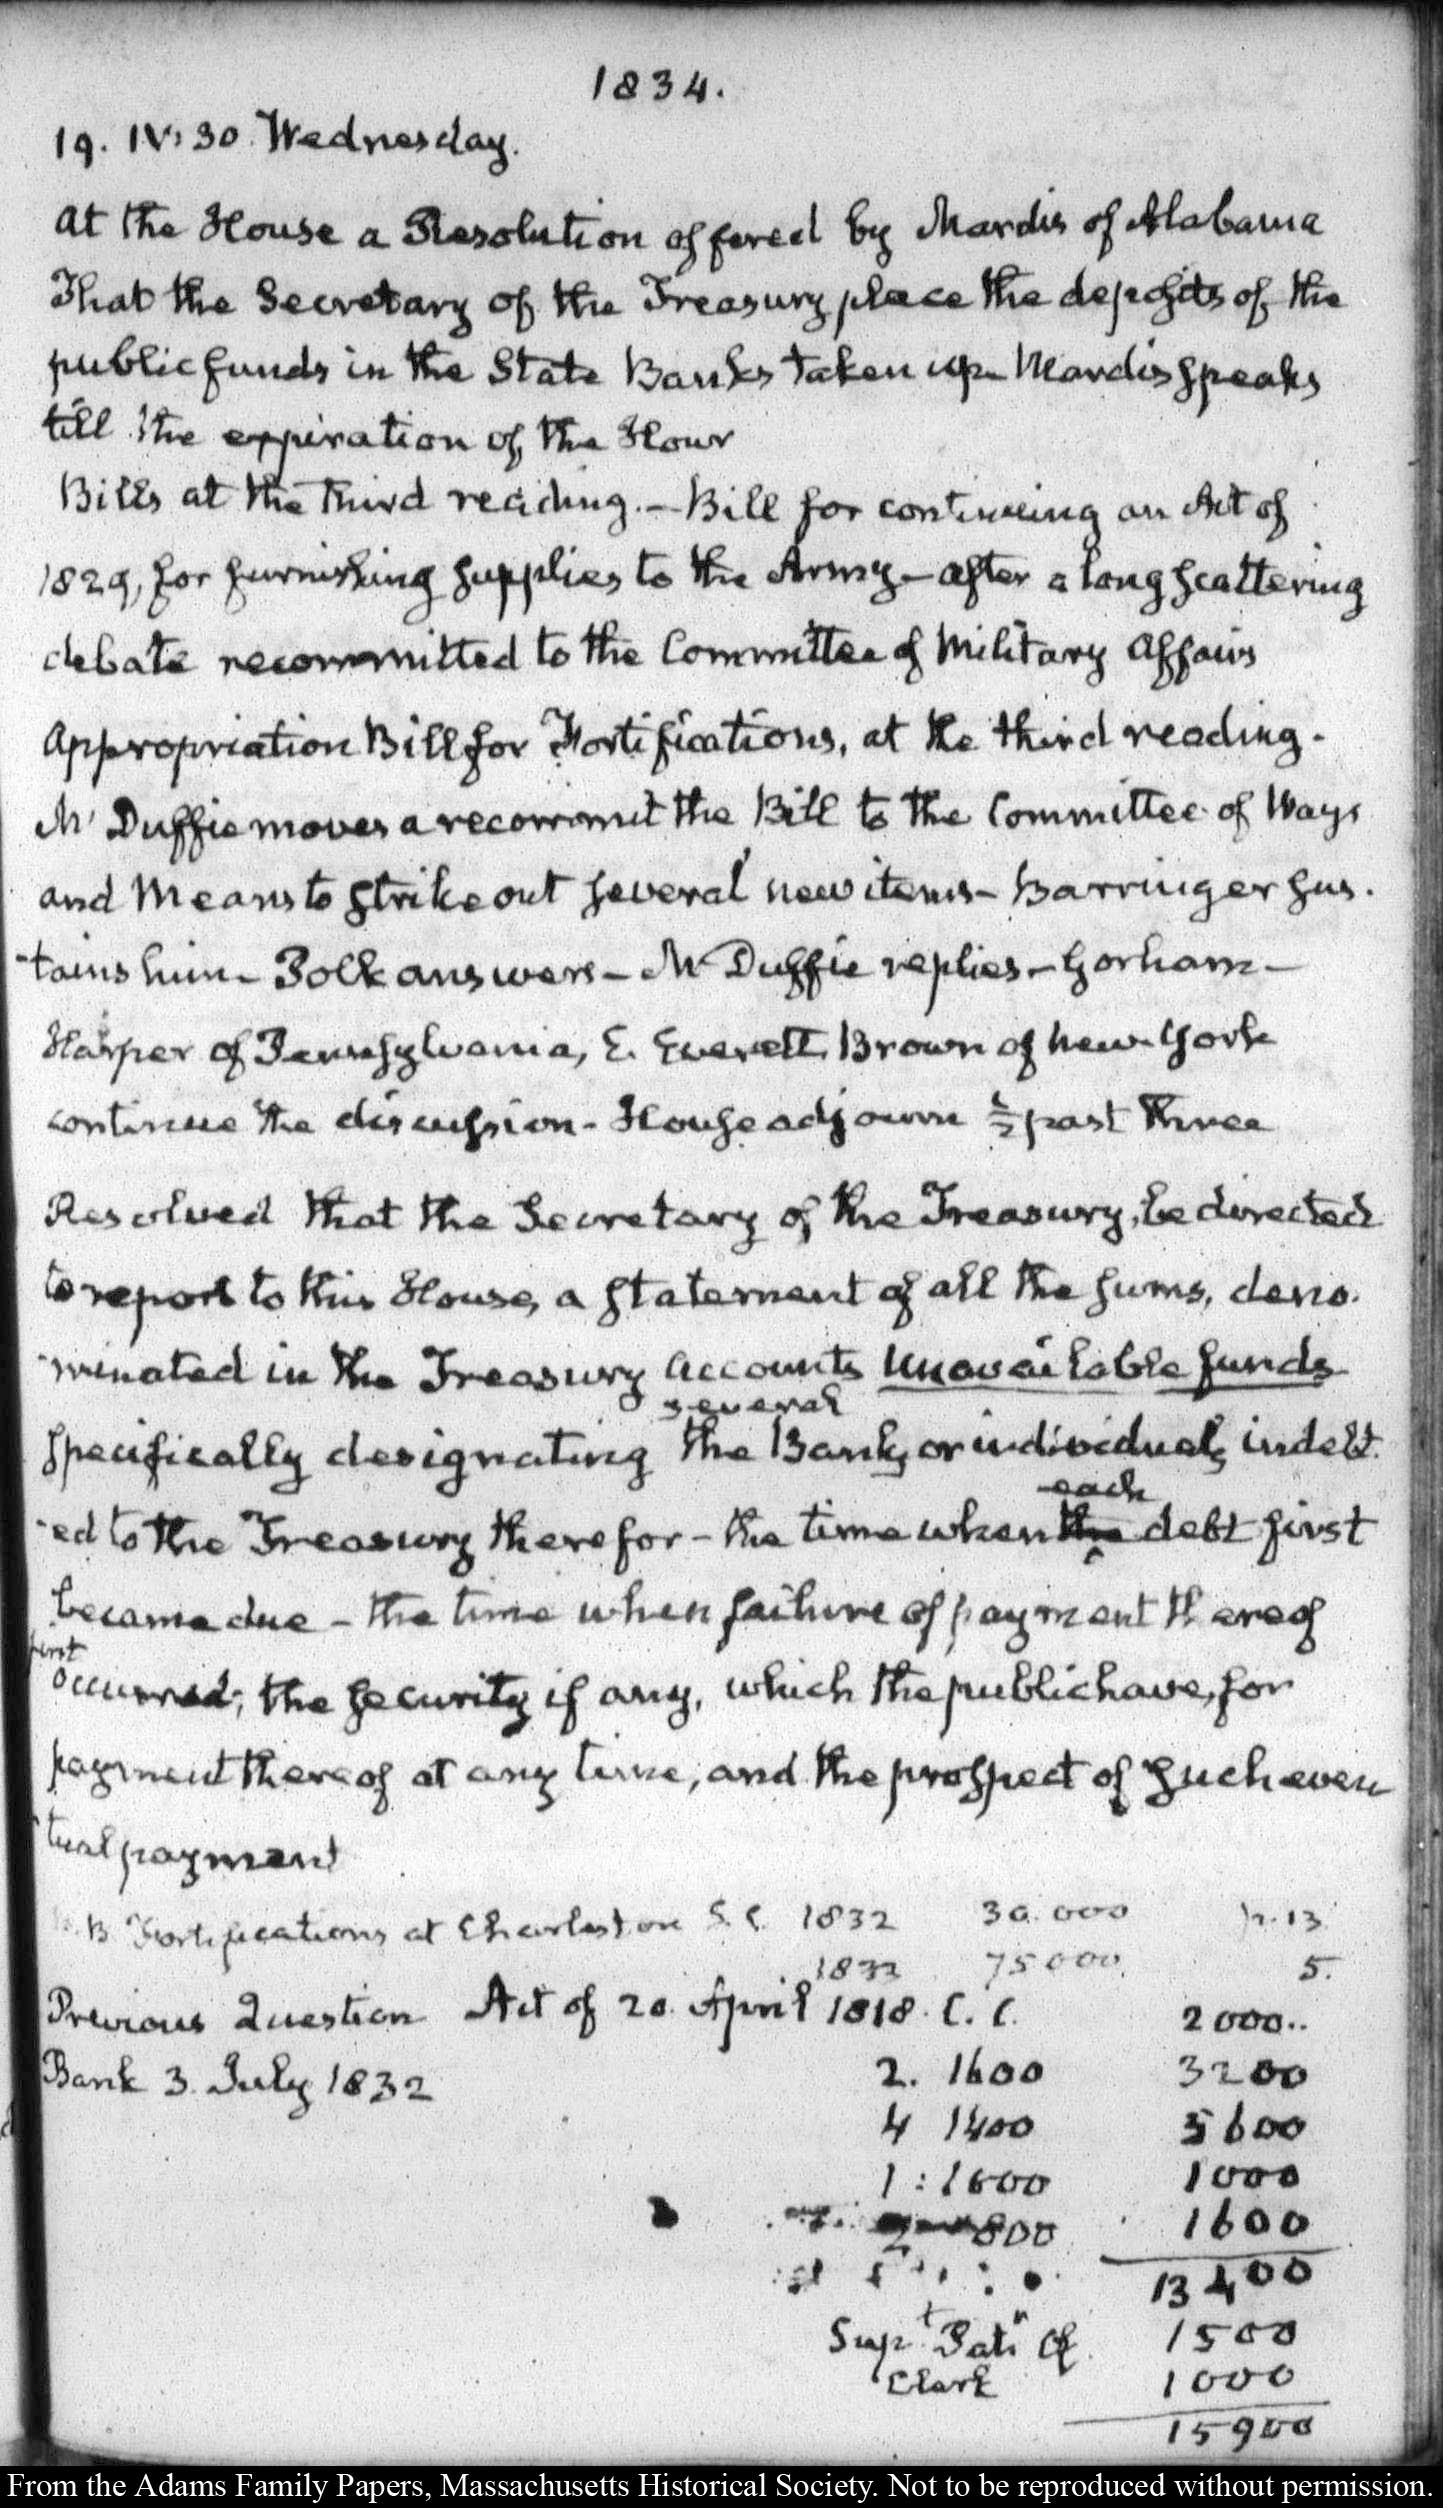 1834.
19. IV: 30. Wednesday.
At the House a Resolution offered by Mardis of Alabama
That the Secretary of the Treasury place the deposits of the
public funds in the State Banks taken up - Mardis speaks
till the expiration of the Hour
Bills at the third reading. - Bill for continuing an Act of
1829, for furnishing supplies to the Army - after a long scattering
debate recommitted to the Committee of Military Affairs
Appropriation Bill for Fortifications, at the third reading.
Mc Duffie moves a recommit the Bill to the Committee of Ways
and Means to strike out several new items - Barringer sus-
-tains him - Polk answers - Mc Duffie replies - Gorham -
Harper of Pennsylvania, E. Everett, Brown of New-York
continue the discussion - House adjourn ½ past three
Resolved that the Secretary of the Treasury, be directed
to report to this House, a statement of all the sums, deno-
-minated in the Treasury accounts Unavailable funds
several
specifically designating the Banks or individuals indebt-
each
-ed to the Treasury therefor - the time when the debt first
became due - the time when failure of payment thereof
first
occurred; the security if any, which the public have, for
payment thereof at any time, and the prospect of such even
-tual payment
B Fortifications at Charleston S. C. 1832 30.000 p. 13
1833 75000 5.
Previous Question Act of 20. April 1818. C. C. 2000..
Bank 3. July 1832 2. 1600 3200
4 1400 5600
1: 1000 1000
2 800 1600
13400
Supt Patt Off 1500
Clerk 1000
15900
From the Adams Family Papers, Massachusetts Historical Society. Not to be reproduced without permission.